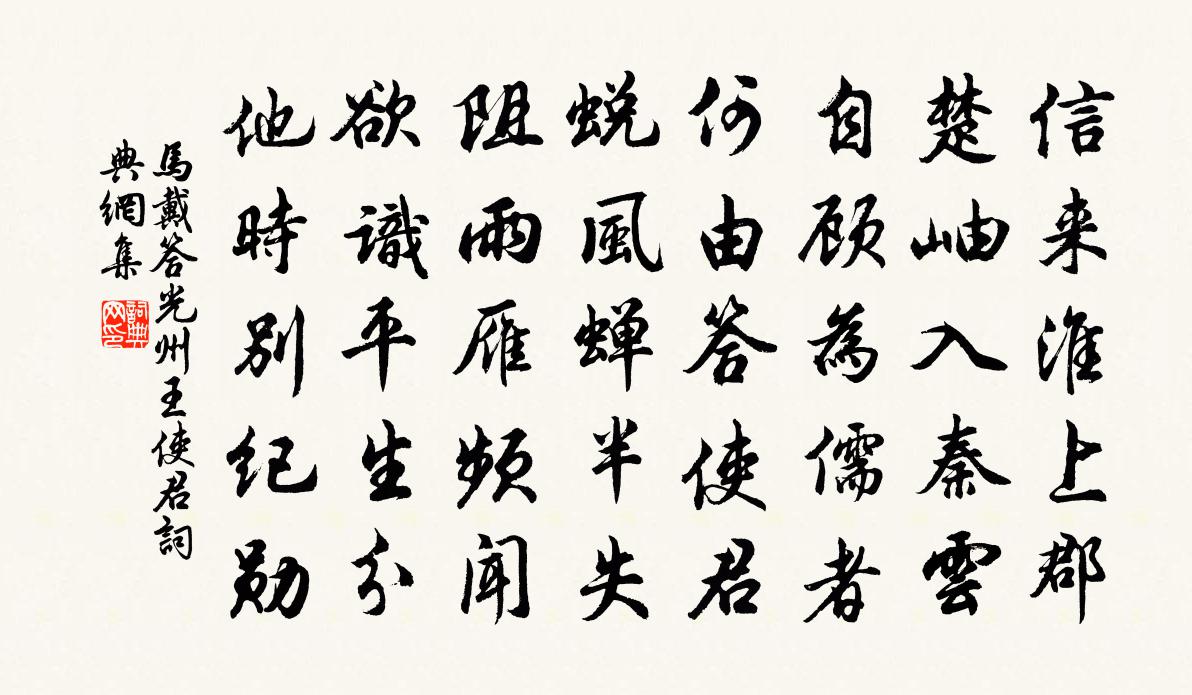 信来淮上郡
楚岫入秦雲
自顾為儒者
何由答使君
蜕風蝉半失
阻雨雁頻闻
欲識平生分
他時别纪勋
馬戴答光州王使君詞
典網集
詞典
网印